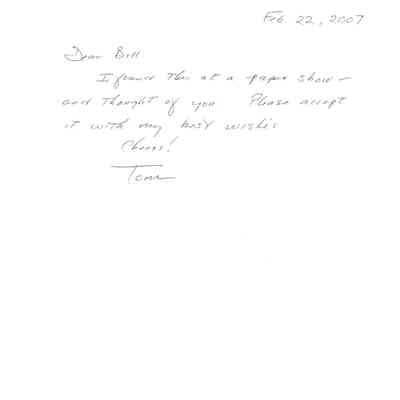 Feb. 22, 2007
Dear Bill
I found this at a paper show—
and thought of you Please accept
it with my best wishes
Cheers!
Tom